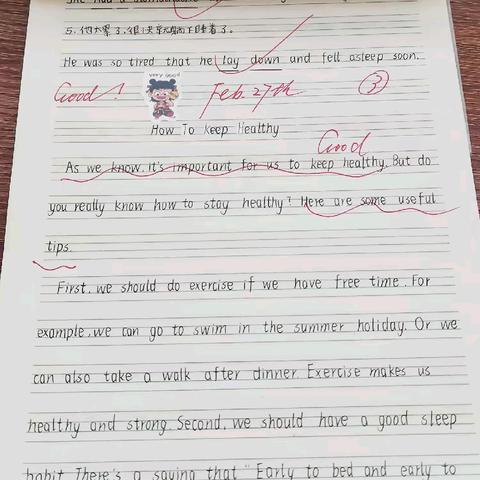 5. 他太累了,很快就躺下睡着了.
He was so tired that he lay down and fell asleep soon.
Good!
very good
Feb. 27th
3
How To Keep Healthy
Good
As we know, it's important for us to keep healthy. But do
you really know how to stay healthy? Here are some useful
tips.
First, we should do exercise if we have free time. For
example, we can go to swim in the summer holiday. Or we
can also take a walk after dinner. Exercise makes us
healthy and strong. Second, we should have a good sleep
habit. There's a saying that "Early to bed and early to